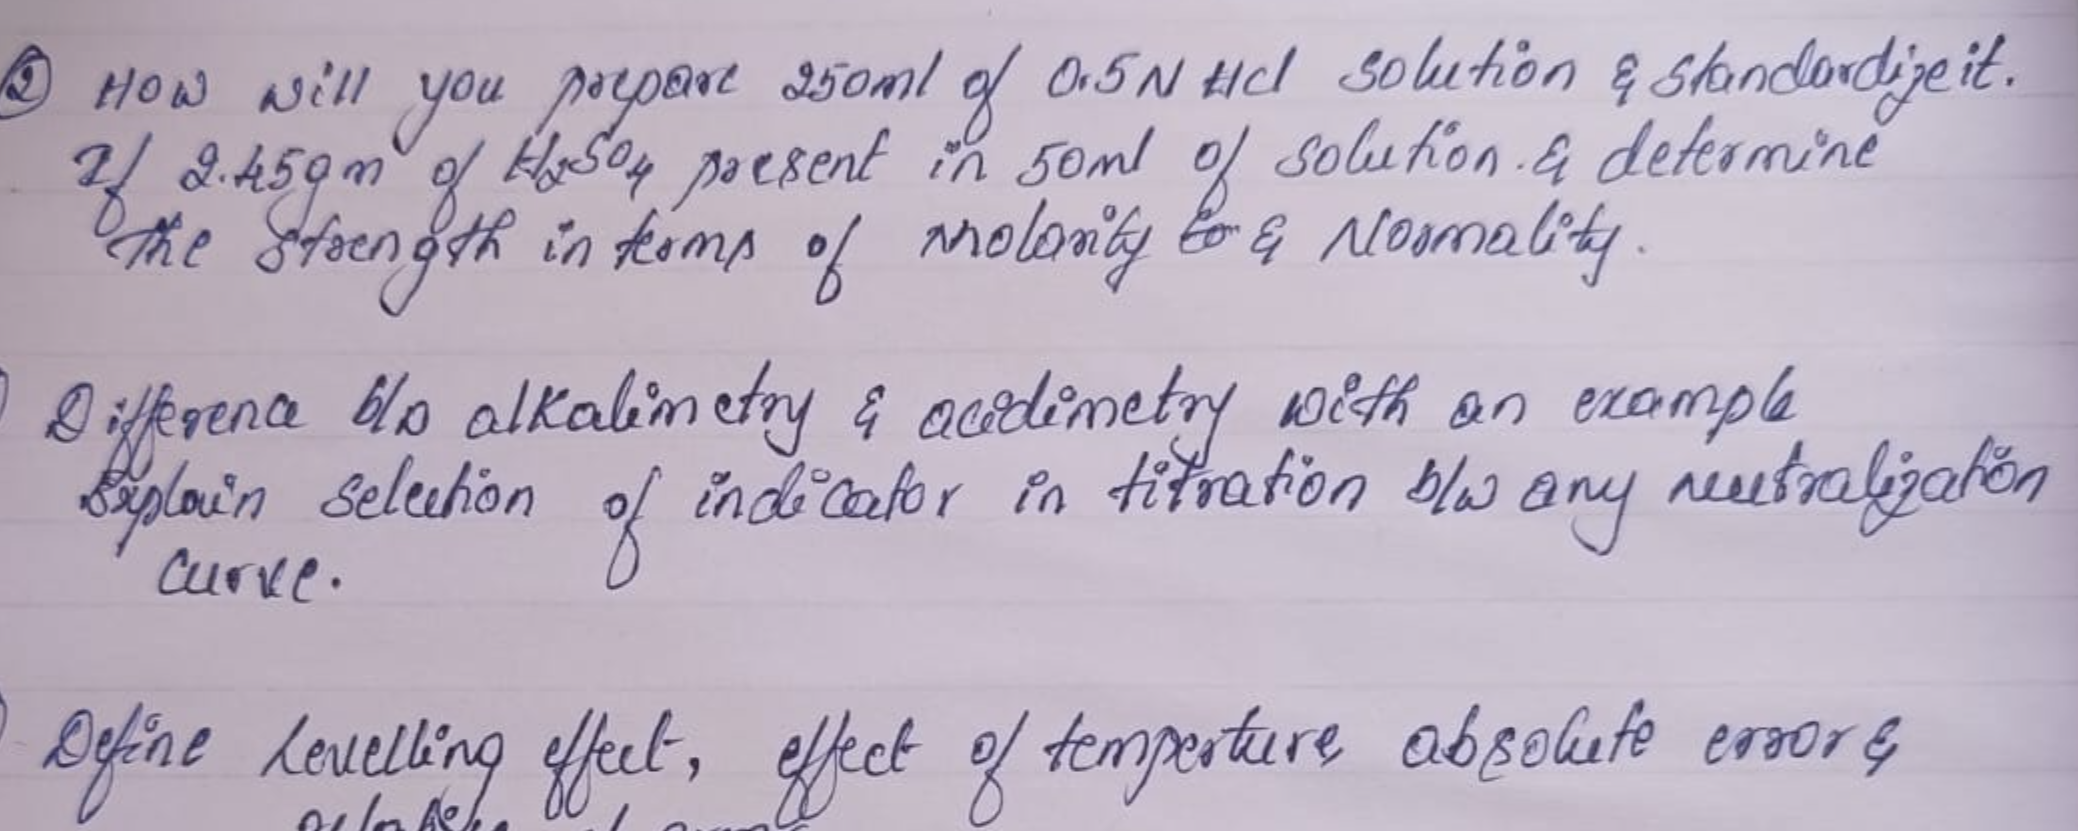 ② How will you prepare 250ml of 0.5N HCl solution & standardize it.
If 2.45gm of H₂SO₄ present in 50ml of solution. & determine
the strength in terms of molarity & Normality.
Difference b/w alkalimetry & acidimetry with an example
Explain selection of indicator in titration b/w any neutralization
curve.
Define Levelling effect, effect of temperture, absolute error &